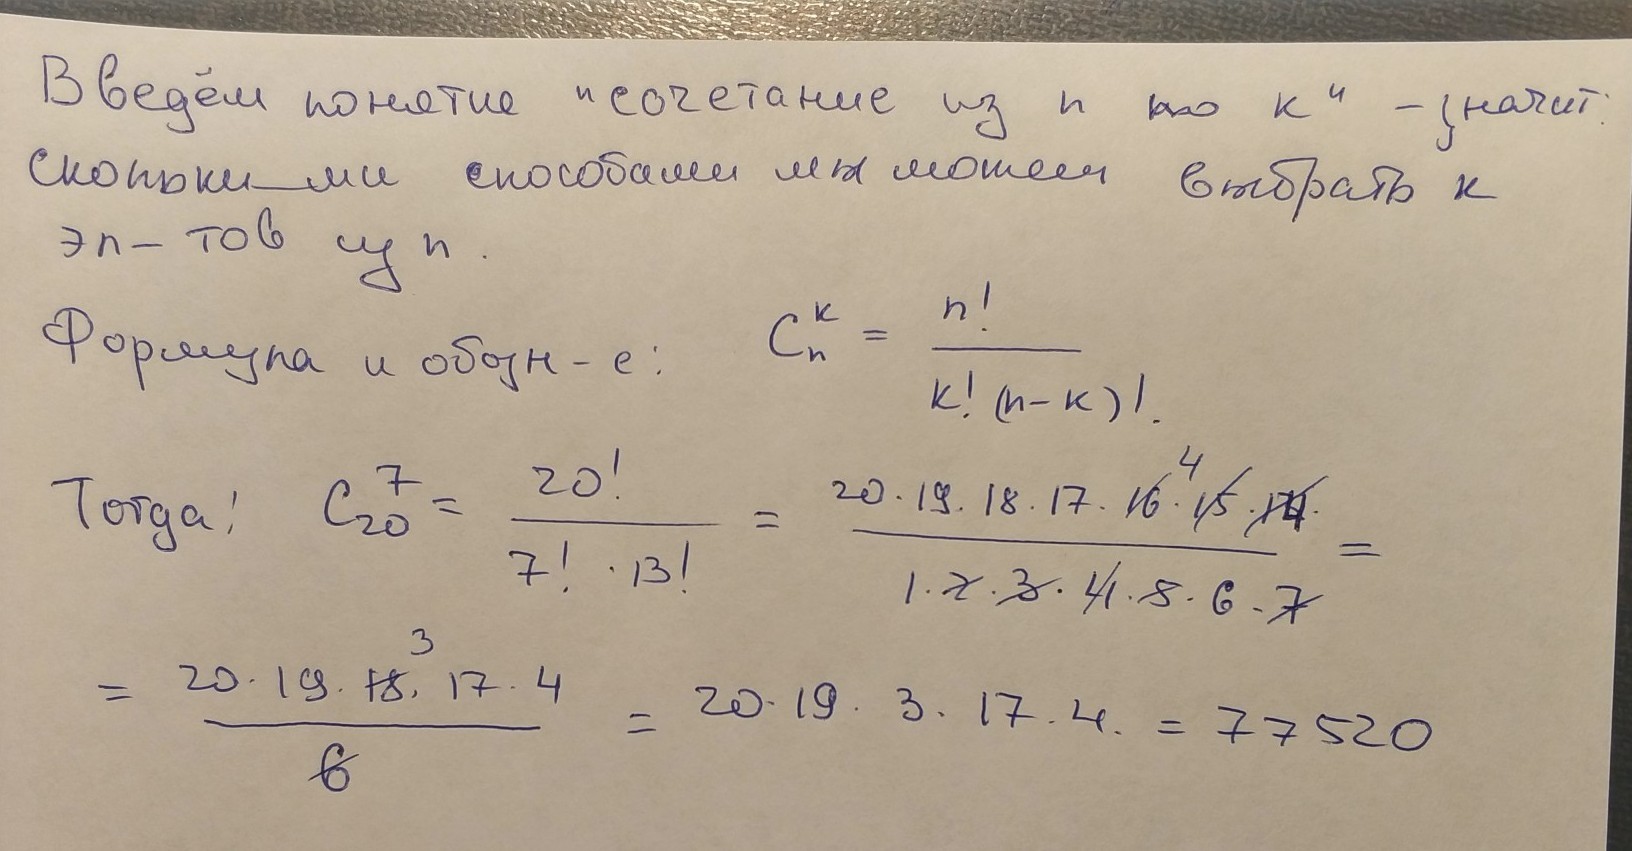 Введём понятие "сочетание из n по k" – значит:
сколькими способами мы можем выбрать k
эл-тов из n.
Формула и обозн-е: C_n^k = n! / k! (n-k)!.
Тогда: C_20^7 = 20! / 7! · 13! = 20 · 19 · 18 · 17 · 16 4 · 15 · 14 / 1 · 2 · 3 · 4 · 5 · 6 · 7 =
= 20 · 19 · 18 3 · 17 · 4 / 6 = 20 · 19 · 3 · 17 · 4 = 77520